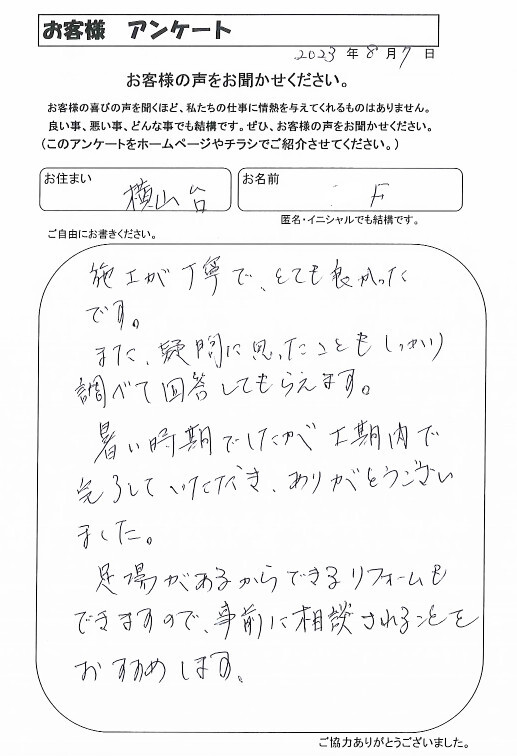 お客様　アンケート
2023 年 8 月 7 日
お客様の声をお聞かせください。
お客様の喜びの声を聞くほど、私たちの仕事に情熱を与えてくれるものはありません。
良い事、悪い事、どんな事でも結構です。ぜひ、お客様の声をお聞かせください。
（このアンケートをホームページやチラシでご紹介させてください。）
お住まい 横山台
お名前 F
匿名・イニシャルでも結構です。
ご自由にお書きください。
施工が丁寧で、とても良かった
です。
また、疑問に思ったこともしっかり
調べて回答してもらえます。
暑い時期でしたが工期内で
完了していただき、ありがとうござい
ました。
足場があるからできるリフォームも
できますので、事前に相談されることを
おすすめします。
ご協力ありがとうございました。